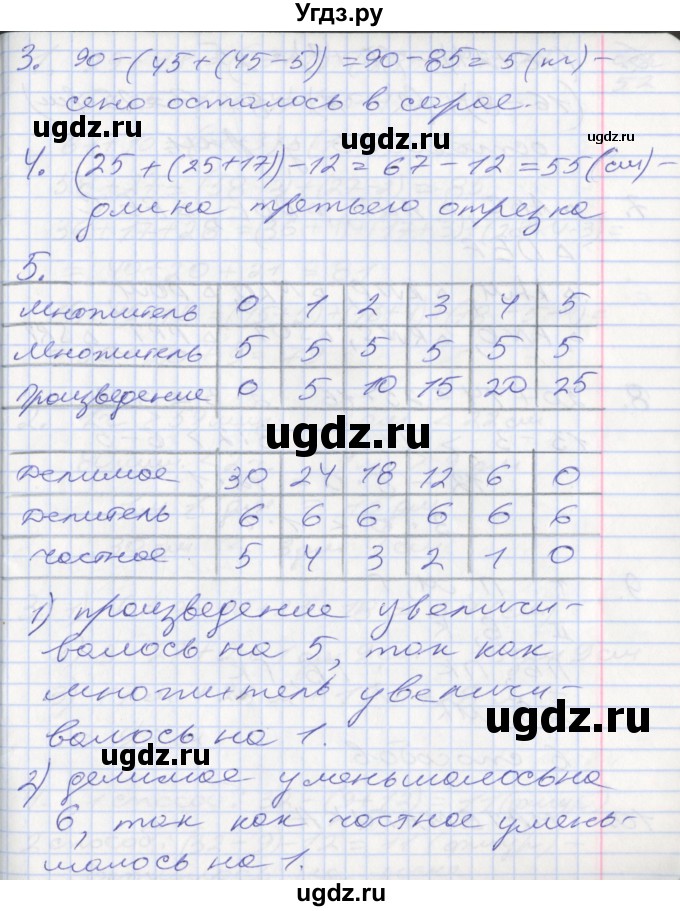 Угдз.ру
3. 90-(45+(45-5))=90-85=5(кг)-
сено осталось в сарае.
ugdz.ru ugdz.ru
4. (25+(25+17))-12=67-12=55(см)-
длина третьего отрезка
ugdz.ru ugdz.ru
5.
множитель 0 1 2 3 4 5
множитель 5 5 5 5 5 5
произведение 0 5 10 15 20 25
ugdz.ru
делимое 30 24 18 12 6 0
делитель 6 6 6 6 6 6
частное 5 4 3 2 1 0
1) произведение увеличи-
ugdz.ru ugdz.ru
валось на 5, так как
множитель увеличи-
ugdz.ru
валось на 1.
ugdz.ru
2) делимое уменьшалось на
6, так как частное умень-
ugdz.ru
шалось на 1.
ugdz.ru